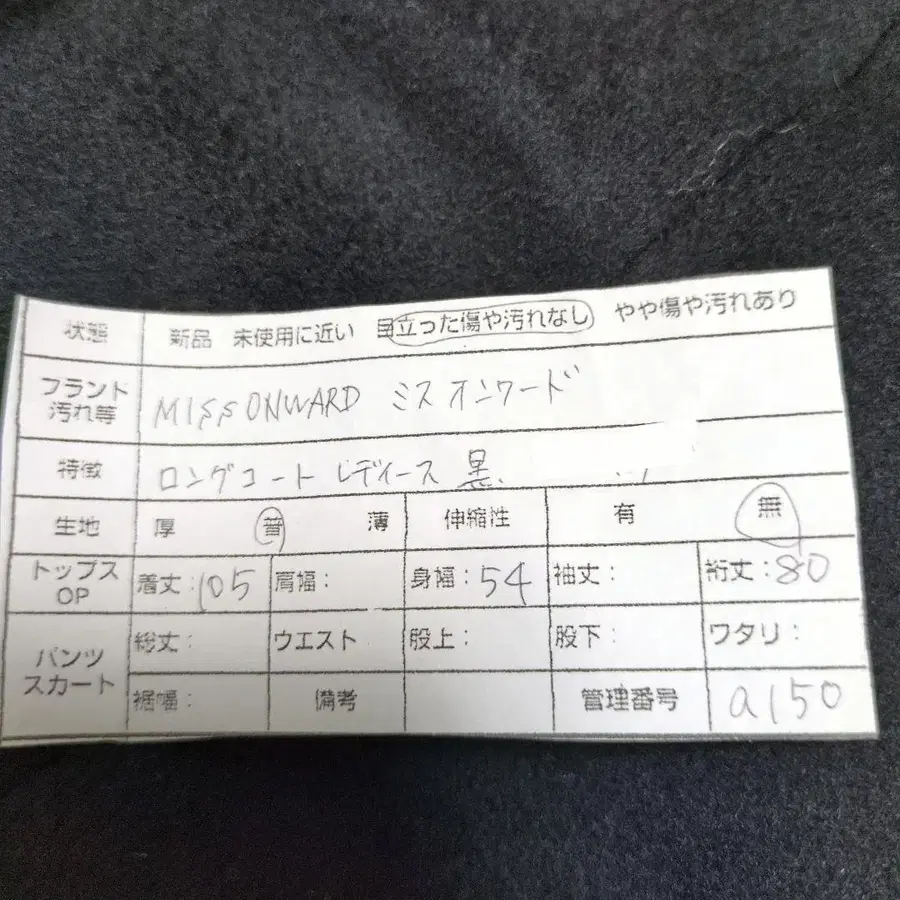 状態 新品 未使用に近い 目立った傷や汚れなし やや傷や汚れあり
フランド
汚れ等
MISS ONWARD ミス オンワード
特徴 ロングコート レディース 黒
生地 厚 普 薄 伸縮性 有 無
トップス
OP
着丈:105 肩幅: 身幅:54 袖丈: 裄丈:80
パンツ
スカート
総丈: ウエスト 股上: 股下: ワタリ:
裾幅: 備考 管理番号 a150